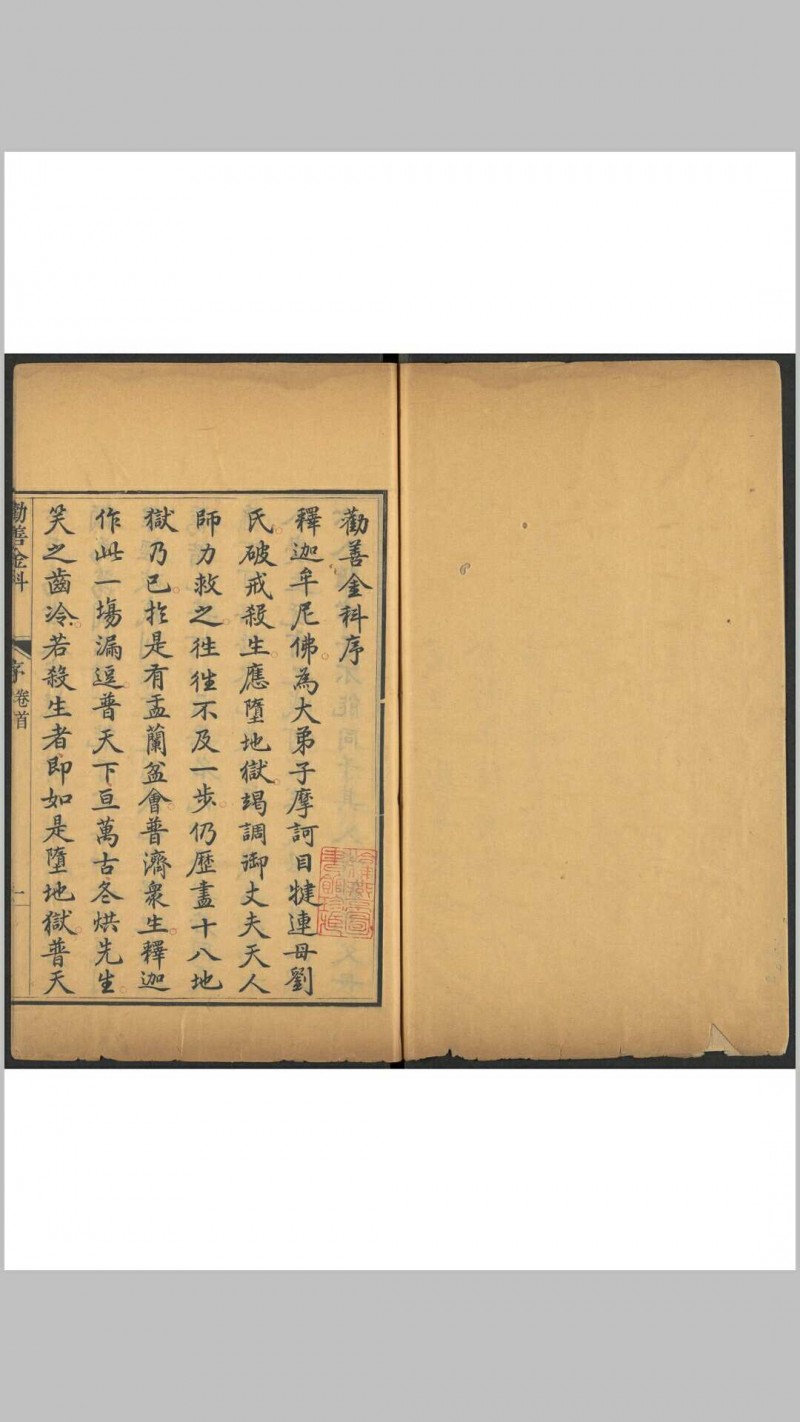 勸善金科序
釋迦牟尼佛。為大弟子摩訶目犍連母劉
氏。破戒殺生。應墮地獄。竭調御丈夫天人
師力救之。往往不及一步。仍歷盡十八地
獄乃已。於是有盂蘭盆會。普濟衆生。釋迦
作此一場漏逗。普天下亘萬古冬烘先生。
笑之齒冷。若殺生者即如是墮地獄。普天
勸善金科
序 卷首
一